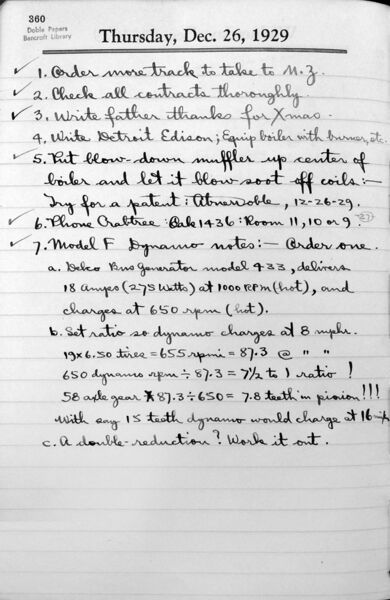 360
Doble Papers
Bancroft Library
Thursday, Dec. 26, 1929
✓ 1. Order more track to take to N.Z.
✓ 2. Check all contracts thoroughly.
✓ 3. Write father thanks for Xmas.
4. Write Detroit Edison; Equip boiler with burner, etc.
✓ 5. Put blow-down muffler up center of
boiler and let it blow soot off coils:-
Try for a patent: Abner Doble, 12-26-29.
✓ 6. Phone Crabtree: Oak 1436: Room 11, 10 or 9.
✓ 7. Model F Dynamo notes:- Order one.
a. Delco Bus Generator model 433, delivers
18 amps (275 Watts) at 1000 RPM (hot), and
charges at 650 rpm (hot).
b. Set ratio so dynamo charges at 8 mph.
19x6.50 tires = 655 rpmi = 87.3 @ " "
650 dynamo rpm ÷ 87.3 = 7½ to 1 ratio!
58 axle gear X 87.3 ÷ 650 = 7.8 teeth in pinion!!!
With say 15 teeth dynamo would charge at 16
c. A double-reduction? Work it out.